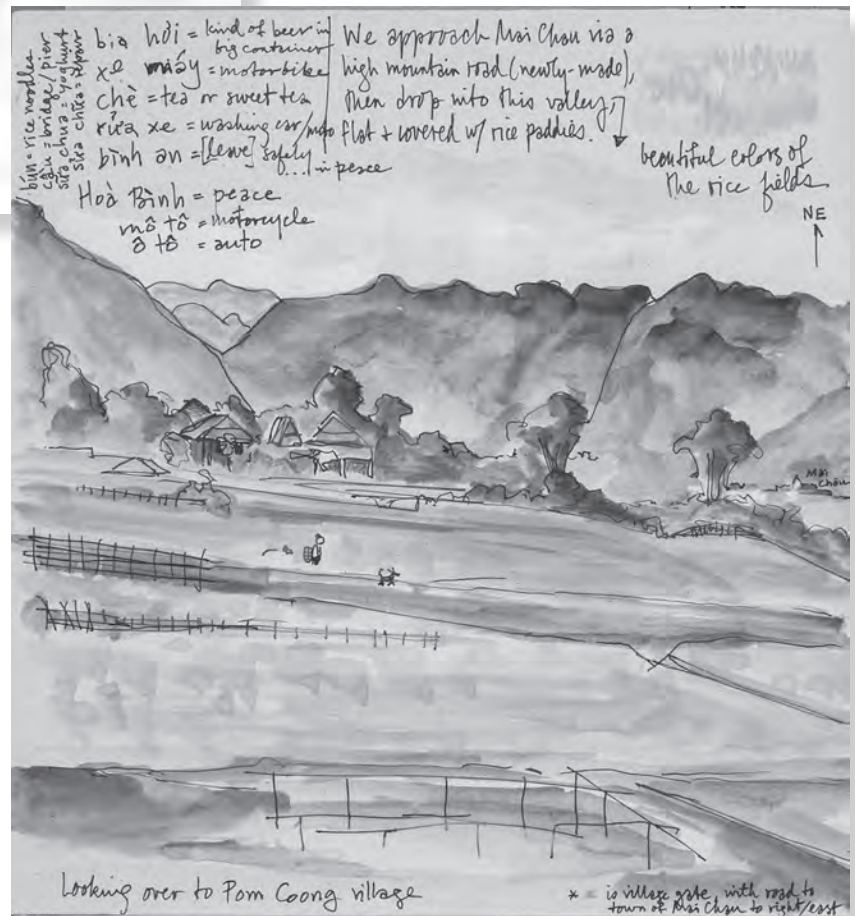 bún = rice noodles
cầu = bridge/pier
sữa chua = yoghurt
sửa chữa = repair
bia hơi = kind of beer in
big container
xe máy = motorbike
chè = tea or sweet tea
rửa xe = washing car/moto
bình an = [leave] safely
... in peace
Hoà Bình = peace
mô tô = motorcycle
ô tô = auto
We approach Mai Chau via a
high mountain road (newly-made),
then drop into this valley,
flat + covered w/ rice paddies.
beautiful colors of
the rice fields
NE
Mai
Chau
Looking over to Pom Coong village
* = is village gate, with road to
town of Mai Chau to right/east